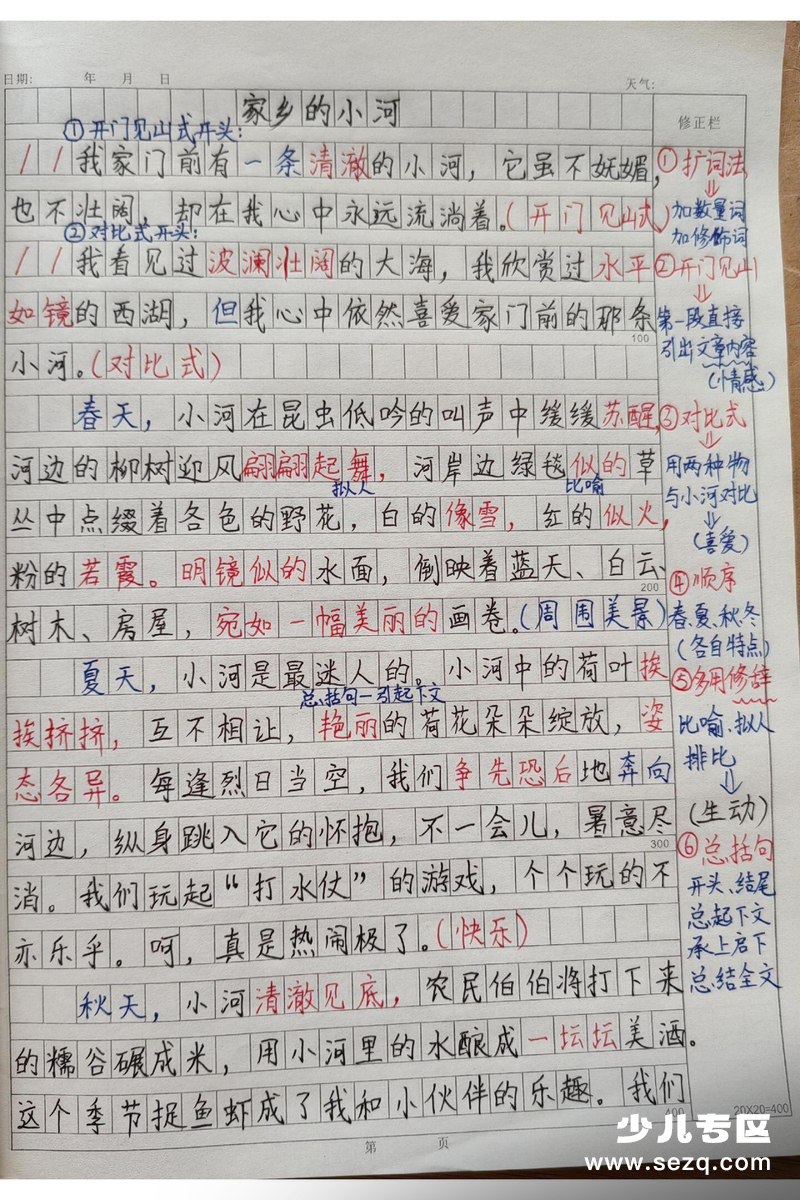 日期: 年 月 日 天气:
家乡的小河
修正栏
①开门见山式开头:
//我家门前有一条清澈的小河，它虽不妩媚，
也不壮阔，却在我心中永远流淌着。(开门见山式)
②对比式开头:
//我看见过波澜壮阔的大海，我欣赏过水平
如镜的西湖，但我心中依然喜爱家门前的那条
100
小河。(对比式)
春天，小河在昆虫低吟的叫声中缓缓苏醒，
河边的柳树迎风翩翩起舞，河岸边绿毯似的草
拟人 比喻
丛中点缀着各色的野花，白的像雪，红的似火，
粉的若霞。明镜似的水面，倒映着蓝天、白云、
200
树木、房屋，宛如一幅美丽的画卷。(周围美景)
夏天，小河是最迷人的。小河中的荷叶挨
总括句—引起下文
挨挤挤，互不相让，艳丽的荷花朵朵绽放，姿
态各异。每逢烈日当空，我们争先恐后地奔向
河边，纵身跳入它的怀抱，不一会儿，暑意尽
300
消。我们玩起“打水仗”的游戏，个个玩的不
亦乐乎。呵，真是热闹极了。(快乐)
秋天，小河清澈见底，农民伯伯将打下来
的糯谷碾成米，用小河里的水酿成一坛坛美酒。
这个季节捉鱼虾成了我和小伙伴的乐趣。我们
400
20X20=400
第 页
①扩词法
加数量词
加修饰词
②开门见山
第一段直接
引出文章内容
(情感)
③对比式
用两种物
与小河对比
(喜爱)
④顺序
春、夏、秋、冬
(各自特点)
⑤多用修辞
比喻、拟人
排比
(生动)
⑥总括句
开头、结尾
总起下文
承上启下
总结全文
少儿专区
www.sezq.com